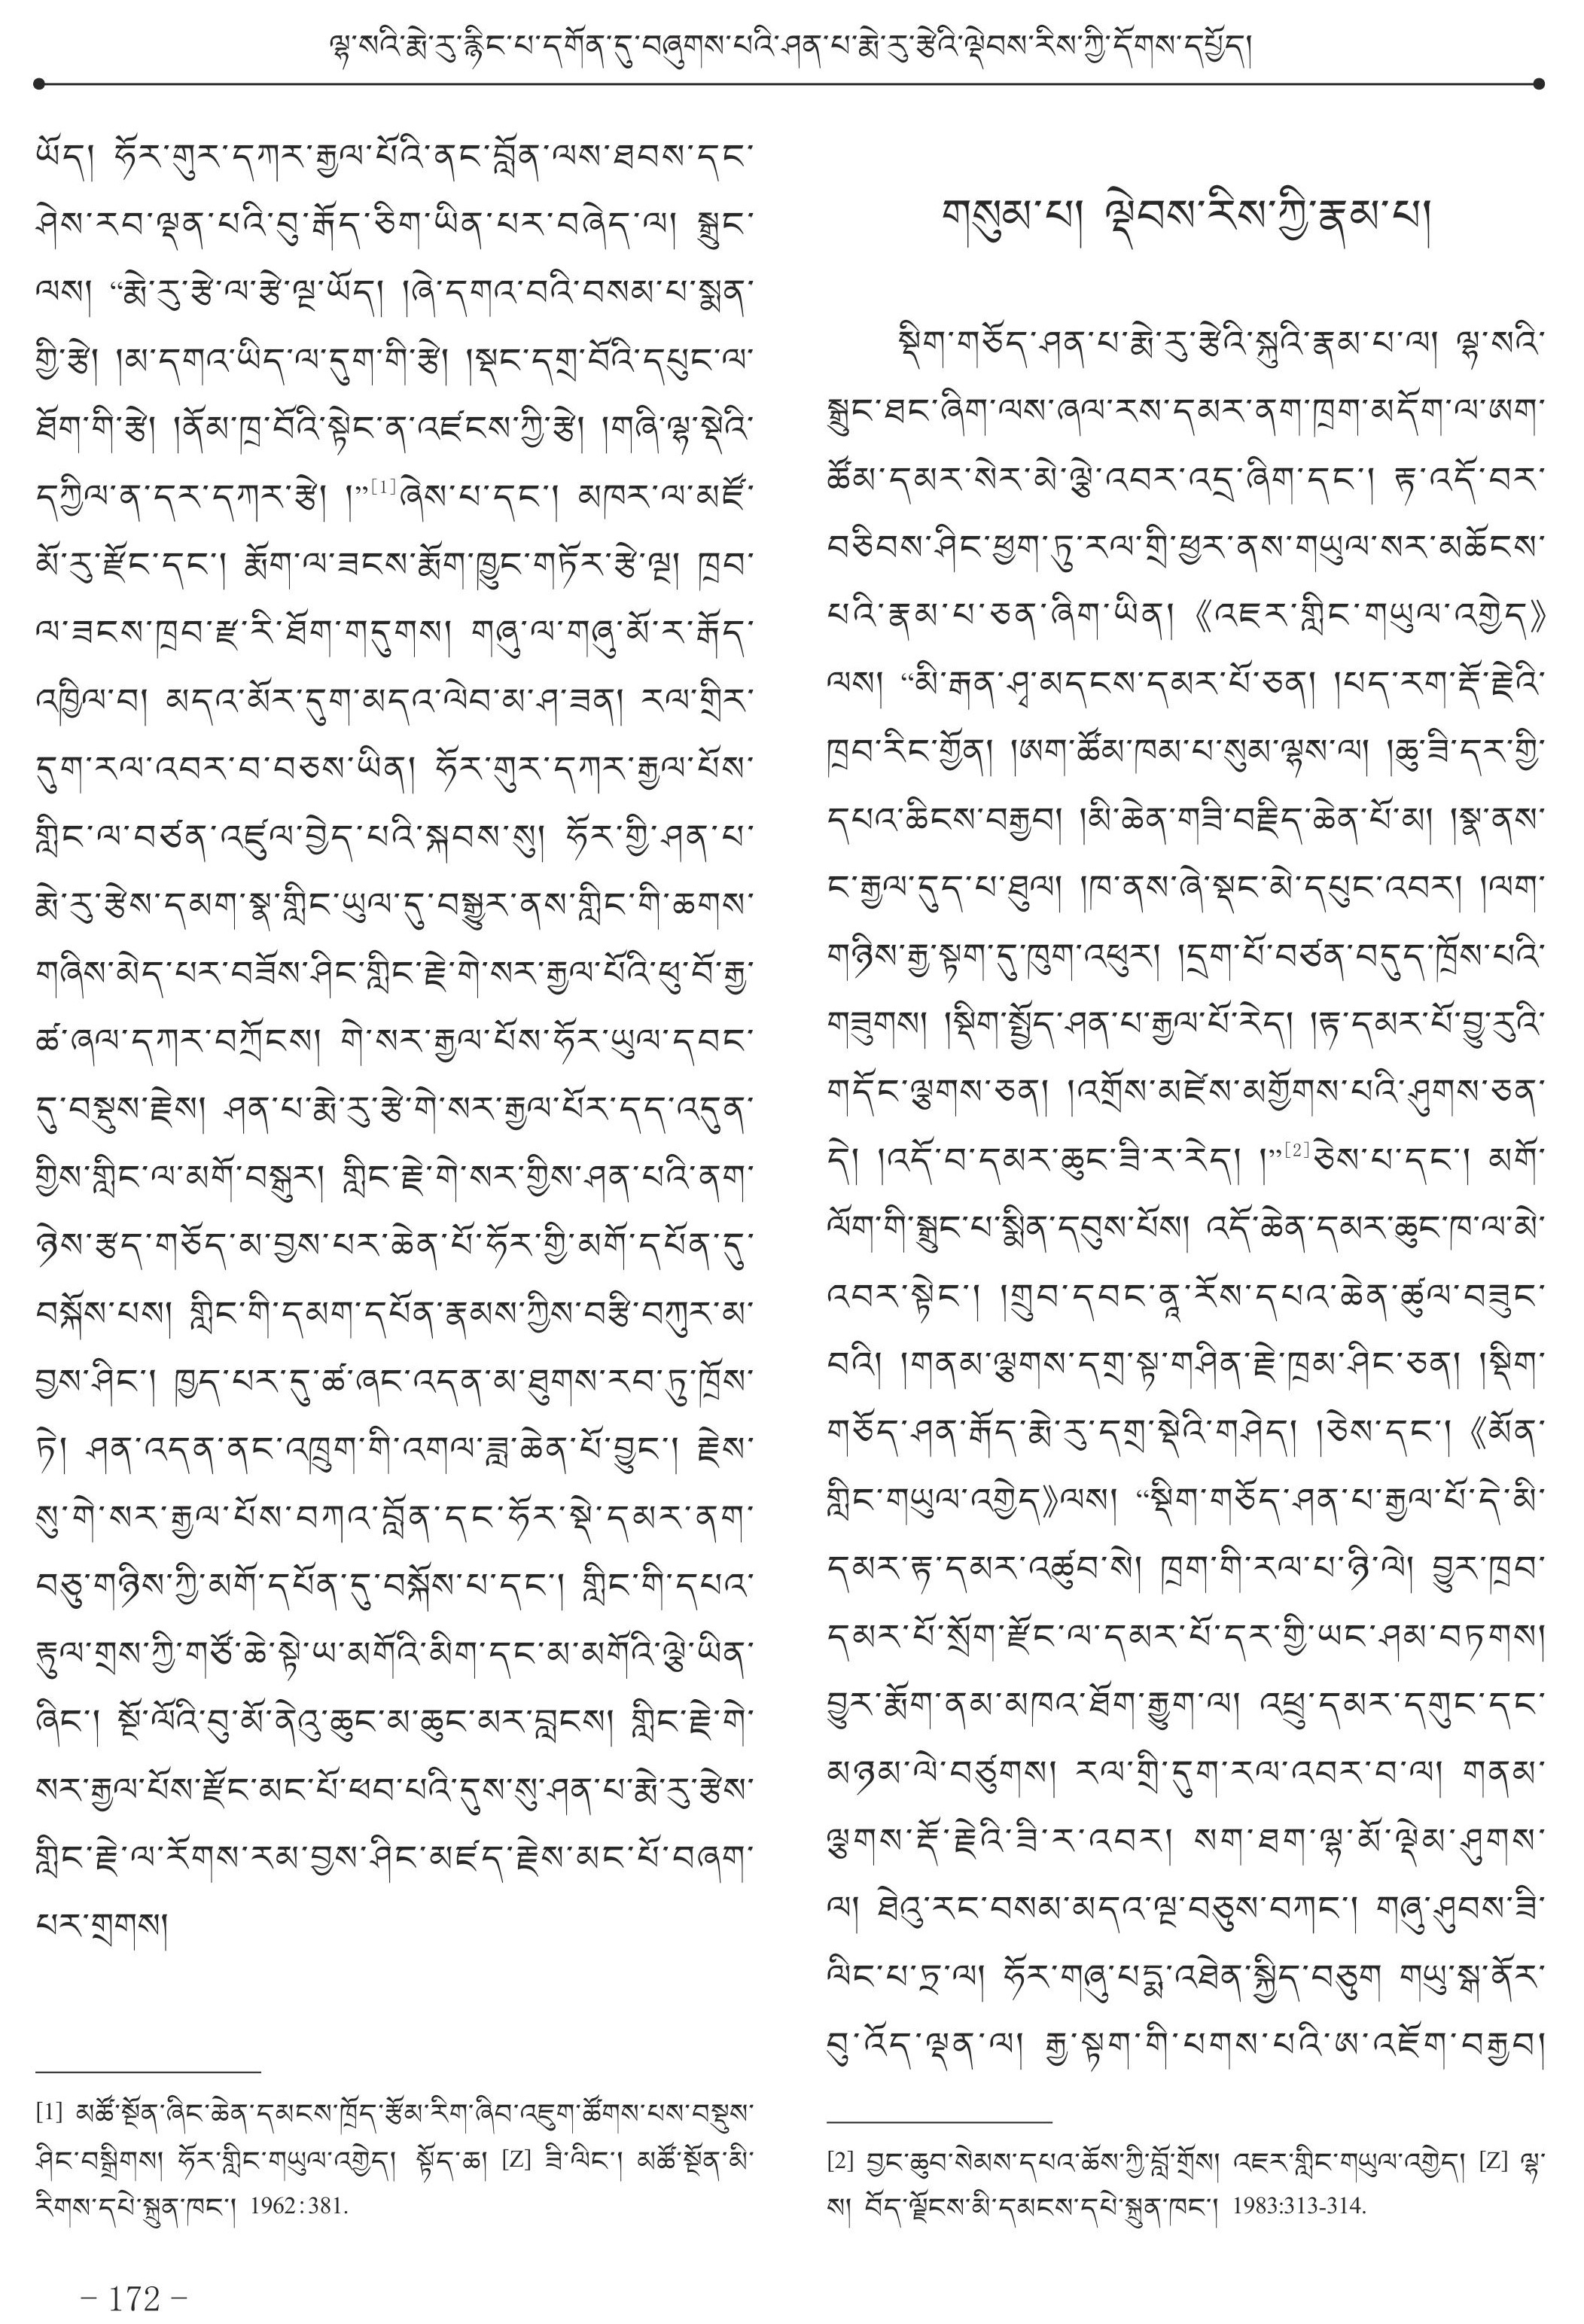 ལྷ་སའི་རྨེ་རུ་རྙིང་པ་དགོན་དུ་བཞུགས་པའི་ཤན་པ་རྨེ་རུ་རྩེའི་ལྡེབས་རིས་ཀྱི་དོགས་དཔྱོད།
ཡོད། ཧོར་གུར་དཀར་རྒྱལ་པོའི་ནང་བློན་ལས་ཐབས་དང་
ཤེས་རབ་ལྡན་པའི་བུ་རྒོད་ཅིག་ཡིན་པར་བཞེད་ལ། སྒྲུང་
ལས། “རྨེ་རུ་རྩེ་ལ་རྩེ་ལྔ་ཡོད། །ཞེ་དགའ་བའི་བསམ་པ་སྨན་
གྱི་རྩེ། །མ་དགའ་ཡིད་ལ་དུག་གི་རྩེ། །སྡང་དགྲ་བོའི་དཔུང་ལ་
ཐོག་གི་རྩེ། །ནོམ་ཁྲ་བོའི་སྟེང་ན་འཛངས་ཀྱི་རྩེ། །གཞི་ལྷ་སྡེའི་
དཀྱིལ་ན་དར་དཀར་རྩེ། །”[1]ཞེས་པ་དང་། མཁར་ལ་མཛོ་
མོ་རུ་རྫོང་དང་། རྨོག་ལ་ཟངས་རྨོག་ཁྱུང་གཏོར་རྩེ་ལྔ། ཁྲབ་
ལ་ཟངས་ཁྲབ་རྫ་རི་ཐོག་གདུགས། གཞུ་ལ་གཞུ་མོ་ར་རྒོད་
འཁྱིལ་བ། མདའ་མོར་དུག་མདའ་ལེབ་མ་ཤ་ཟན། རལ་གྲིར་
དུག་རལ་འབར་བ་བཅས་ཡིན། ཧོར་གུར་དཀར་རྒྱལ་པོས་
གླིང་ལ་བཙན་འཛུལ་བྱེད་པའི་སྐབས་སུ། ཧོར་གྱི་ཤན་པ་
རྨེ་རུ་རྩེས་དམག་སྣ་གླིང་ཡུལ་དུ་བསྒྱུར་ནས་གླིང་གི་ཆགས་
གཞིས་མེད་པར་བཟོས་ཤིང་གླིང་རྗེ་གེ་སར་རྒྱལ་པོའི་ཕུ་བོ་རྒྱ་
ཚ་ཞལ་དཀར་བཀྲོངས། གེ་སར་རྒྱལ་པོས་ཧོར་ཡུལ་དབང་
དུ་བསྡུས་རྗེས། ཤན་པ་རྨེ་རུ་རྩེ་གེ་སར་རྒྱལ་པོར་དད་འདུན་
གྱིས་གླིང་ལ་མགོ་བསྒུར། གླིང་རྗེ་གེ་སར་གྱིས་ཤན་པའི་ནག་
ཉེས་རྩད་གཅོད་མ་བྱས་པར་ཆེན་པོ་ཧོར་གྱི་མགོ་དཔོན་དུ་
བསྐོས་པས། གླིང་གི་དམག་དཔོན་རྣམས་ཀྱིས་བརྩི་བཀུར་མ་
བྱས་ཤིང་། ཁྱད་པར་དུ་ཚ་ཞང་འདན་མ་ཐུགས་རབ་ཏུ་ཁྲོས་
ཏེ། ཤན་འདན་ནང་འཁྲུག་གི་འགལ་ཟླ་ཆེན་པོ་བྱུང་། རྗེས་
སུ་གེ་སར་རྒྱལ་པོས་བཀའ་བློན་དང་ཧོར་སྡེ་དམར་ནག་
བཅུ་གཉིས་ཀྱི་མགོ་དཔོན་དུ་བསྐོས་པ་དང་། གླིང་གི་དཔའ་
རྟུལ་གྲས་ཀྱི་གཙོ་ཆེ་སྟེ་ཡ་མགོའི་མིག་དང་མ་མགོའི་ལྕེ་ཡིན་
ཞིང་། སྔོ་ལོའི་བུ་མོ་ནེའུ་ཆུང་མ་ཆུང་མར་བླངས། གླིང་རྗེ་གེ་
སར་རྒྱལ་པོས་རྫོང་མང་པོ་ཕབ་པའི་དུས་སུ་ཤན་པ་རྨེ་རུ་རྩེས་
གླིང་རྗེ་ལ་རོགས་རམ་བྱས་ཤིང་མཛད་རྗེས་མང་པོ་བཞག་
པར་གྲགས།
[1] མཚོ་སྔོན་ཞིང་ཆེན་དམངས་ཁྲོད་རྩོམ་རིག་ཞིབ་འཇུག་ཚོགས་པས་བསྡུས་
ཤིང་བསྒྲིགས། ཧོར་གླིང་གཡུལ་འགྱེད། སྟོད་ཆ། [Z] ཟི་ལིང་། མཚོ་སྔོན་མི་
རིགས་དཔེ་སྐྲུན་ཁང་། 1962:381.
གསུམ་པ། ལྡེབས་རིས་ཀྱི་རྣམ་པ།
སྡིག་གཅོད་ཤན་པ་རྨེ་རུ་རྩེའི་སྐུའི་རྣམ་པ་ལ། ལྷ་སའི་
སྒྲུང་ཐང་ཞིག་ལས་ཞལ་རས་དམར་ནག་ཁྲག་མདོག་ལ་ཨག་
ཚོམ་དམར་སེར་མེ་ལྕེ་འབར་འདྲ་ཞིག་དང་། རྟ་འདོ་བར་
བཅིབས་ཤིང་ཕྱག་ཏུ་རལ་གྲི་ཕྱར་ནས་གཡུལ་སར་མཆོངས་
པའི་རྣམ་པ་ཅན་ཞིག་ཡིན། 《འཇར་གླིང་གཡུལ་འགྱེད》
ལས། “མི་རྒན་ཤྭ་མདངས་དམར་པོ་ཅན། །པད་རག་རྡོ་རྗེའི་
ཁྲབ་རིང་གྱོན། །ཨག་ཚོམ་ཁམ་པ་སུམ་ལྷས་ལ། །ཆུ་ཟི་དར་གྱི་
དཔའ་ཆིངས་བརྒྱབ། །མི་ཆེན་གཟི་བརྗིད་ཆེན་པོ་མ། །སྣ་ནས་
ང་རྒྱལ་དུད་པ་ཐུལ། །ཁ་ནས་ཞེ་སྡང་མེ་དཔུང་འབར། །ལག་
གཉིས་རྒྱ་སྟག་དུ་ཁུག་འཕུར། །དྲག་པོ་བཙན་བདུད་ཁྲོས་པའི་
གཟུགས། །སྡིག་སྤྱོད་ཤན་པ་རྒྱལ་པོ་རེད། །རྟ་དམར་པོ་བྱུ་རུའི་
གདོང་ལྕགས་ཅན། །འགྲོས་མཛེས་མགྱོགས་པའི་ཤུགས་ཅན་
དེ། །འདོ་བ་དམར་ཆུང་ཟི་ར་རེད། །”[2]ཅེས་པ་དང་། མགོ་
ལོག་གི་སྒྲུང་པ་སྨིན་དབུས་པོས། འདོ་ཆེན་དམར་ཆུང་ཁ་ལ་མེ་
འབར་སྟེང་། །གྲུབ་དབང་ནཱ་རོས་དཔའ་ཆེན་ཚུལ་བཟུང་
བའི། །གནམ་ལྕགས་དགྲ་སྟ་གཤིན་རྗེ་ཁྲམ་ཤིང་ཅན། །སྡིག་
གཅོད་ཤན་རྒོད་རྨེ་རུ་དགྲ་སྡེའི་གཤེད། །ཅེས་དང་། 《མོན་
གླིང་གཡུལ་འགྱེད》ལས། “སྡིག་གཅོད་ཤན་པ་རྒྱལ་པོ་དེ་མི་
དམར་རྟ་དམར་འཚུབ་སེ། ཁྲག་གི་རལ་པ་ཉི་ལེ། བྱུར་ཁྲབ་
དམར་པོ་སྲོག་རྫོང་ལ་དམར་པོ་དར་གྱི་ཡང་ཤམ་བཏགས།
བྱུར་རྨོག་ནམ་མཁའ་ཐོག་རྒྱུག་ལ། འཕྲུ་དམར་དགུང་དང་
མཉམ་ལེ་བཙུགས། རལ་གྲི་དུག་རལ་འབར་བ་ལ། གནམ་
ལྕགས་རྡོ་རྗེའི་ཟི་ར་འབར། སག་ཐག་ལྷ་མོ་ལྡེམ་ཤུགས་
ལ། ཐེའུ་རང་བསམ་མདའ་ལྔ་བཅུས་བཀང་། གཞུ་ཤུབས་ཟི་
ལིང་པ་ཏྲ་ལ། ཧོར་གཞུ་པདྨ་འཐེན་སྐྱིད་བཅུག གཡུ་སྒ་ནོར་
བུ་འོད་ལྡན་ལ། རྒྱ་སྟག་གི་པགས་པའི་ཨ་འཇོག་བརྒྱབ།
[2] བྱང་ཆུབ་སེམས་དཔའ་ཆོས་ཀྱི་བློ་གྲོས། འཇར་གླིང་གཡུལ་འགྱེད། [Z] ལྷ་
ས། བོད་ལྗོངས་མི་དམངས་དཔེ་སྐྲུན་ཁང་། 1983:313-314.
– 172 –